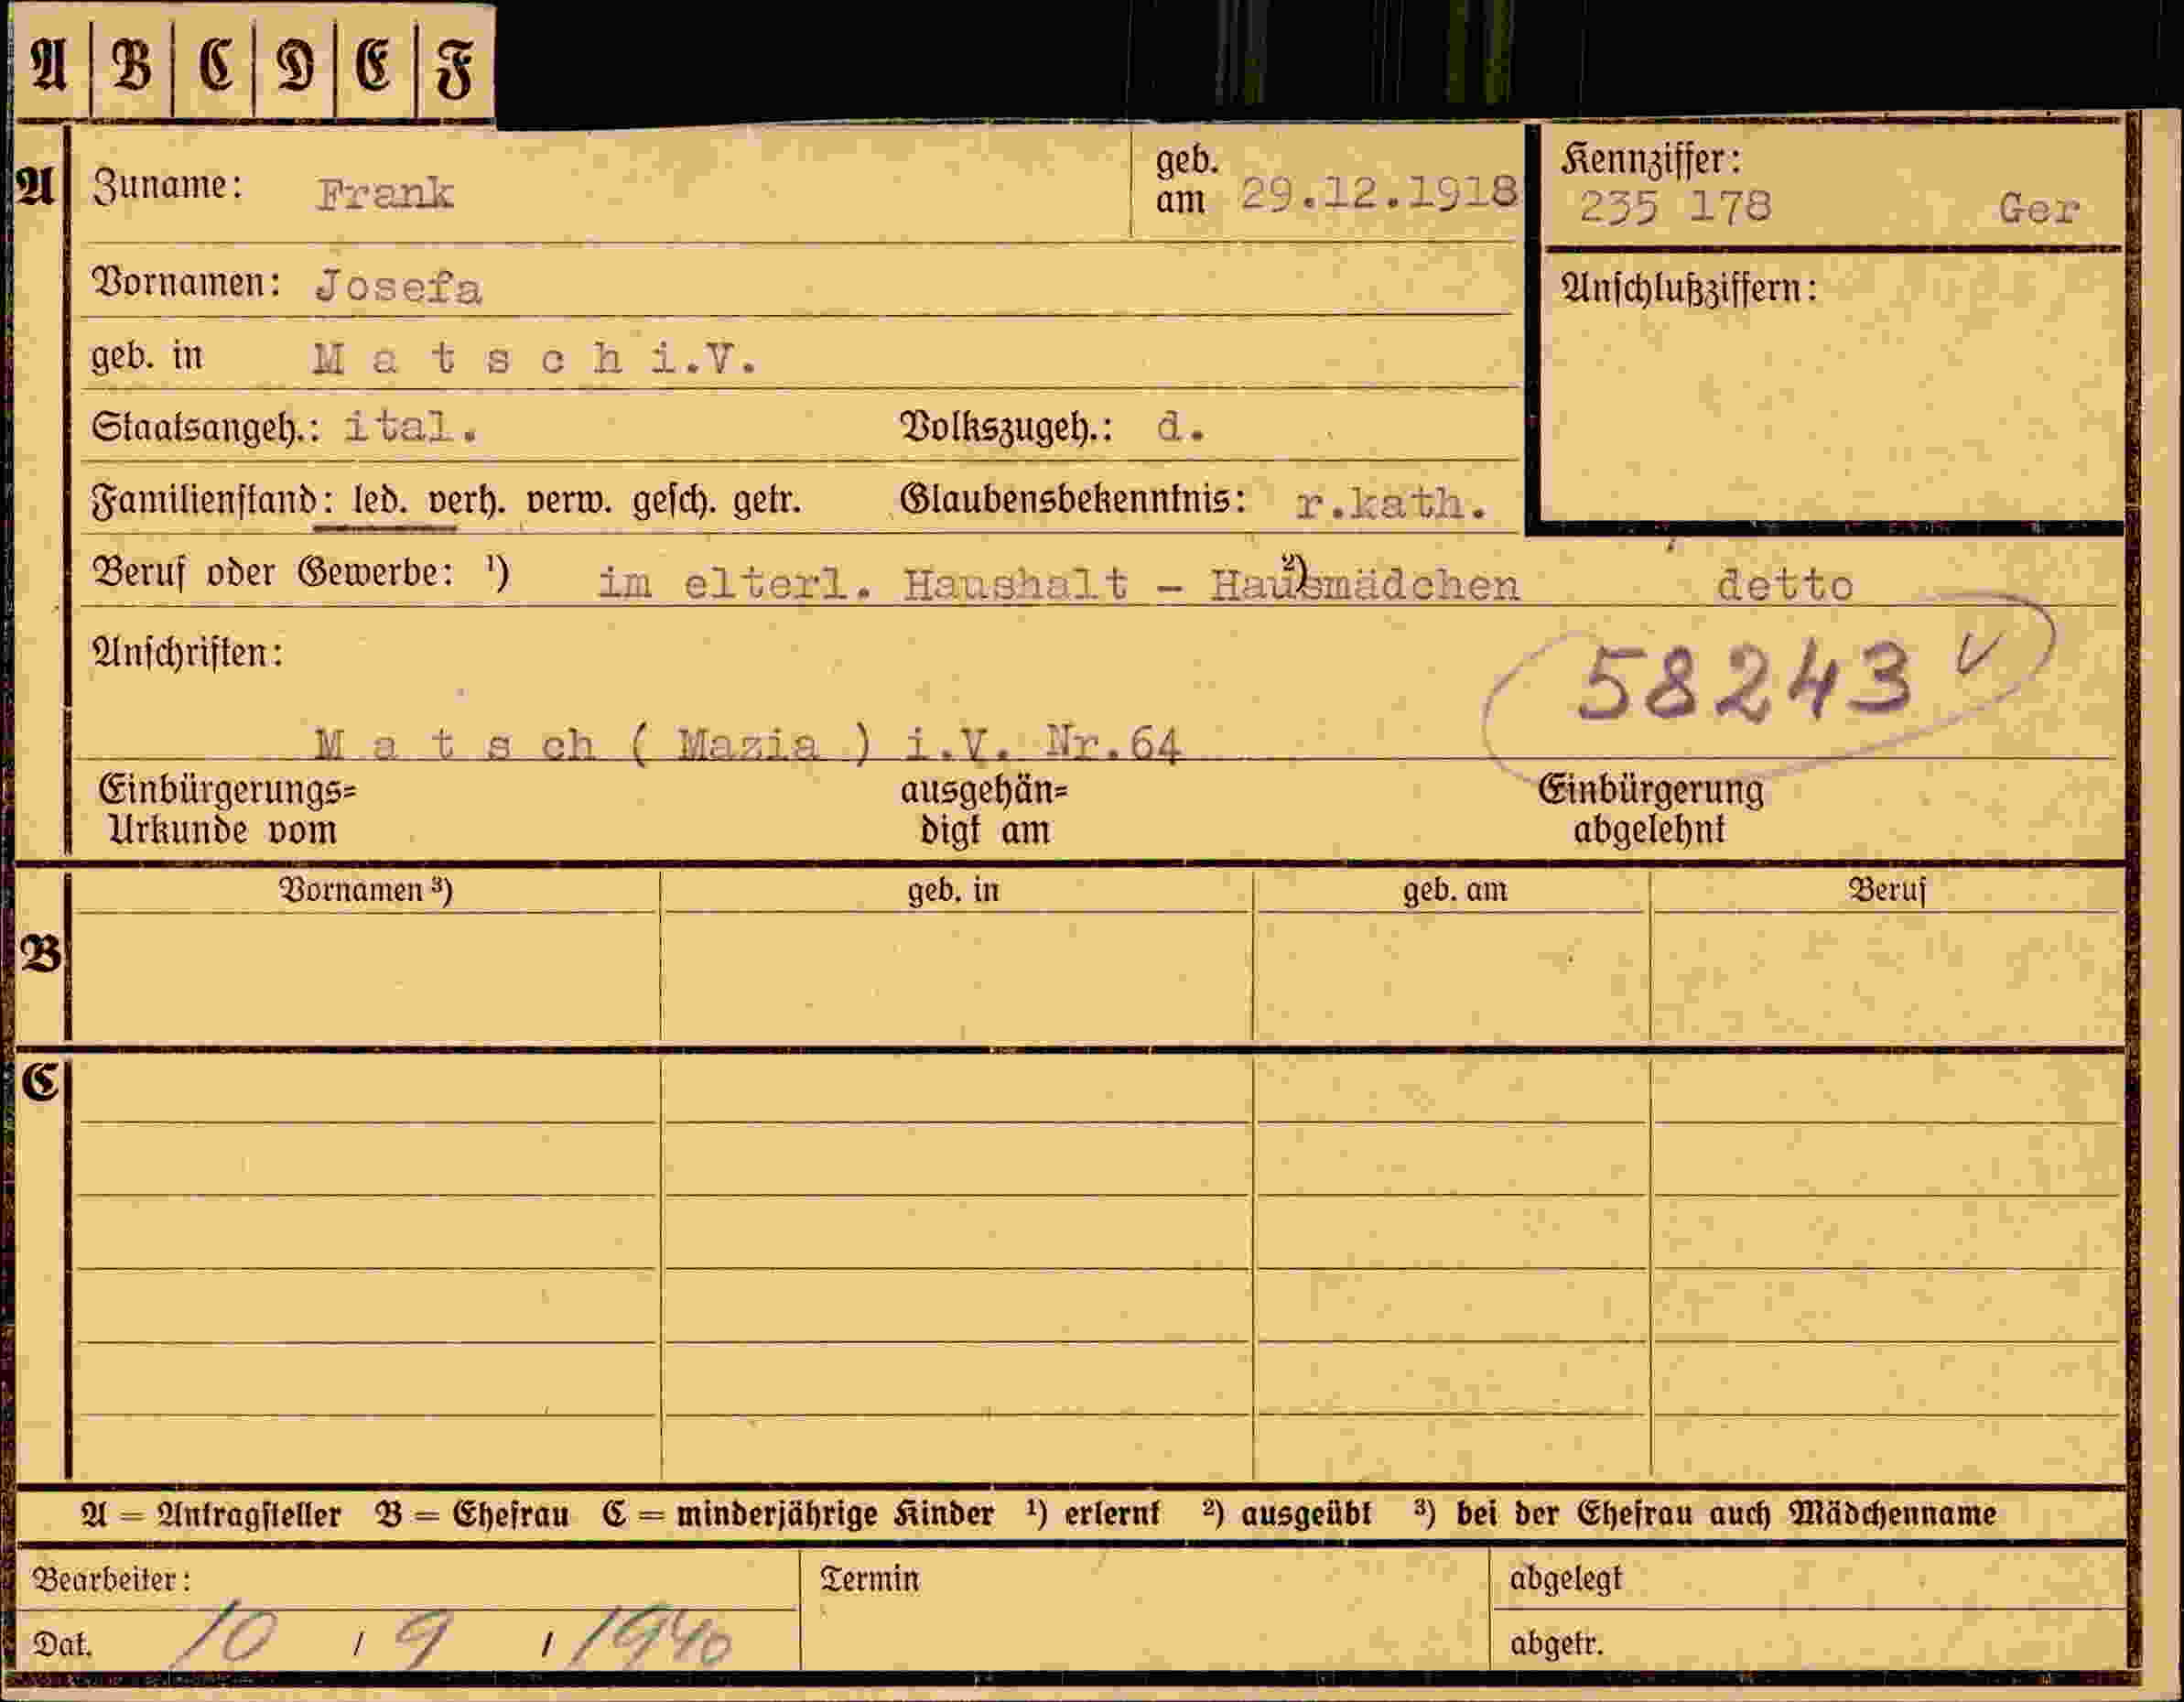 A B C D E F
A Zuname: Frank geb. am 29.12.1918 Kennziffer: 235 178 Ger
Vornamen: Josefa Anschlußziffern:
geb. in M a t s c h i.V.
Staatsangeh.: ital. Volkszugeh.: d.
Familienstand: led. verh. verw. gesch. getr. Glaubensbekenntnis: r.kath.
Beruf oder Gewerbe: ¹) im elterl. Haushalt - Hausmädchen ²) detto
Anschriften: 58243 v
M a t s ch ( Mazia ) i.V. Nr.64
Einbürgerungs= ausgehän= Einbürgerung
Urkunde vom digt am abgelehnt
Vornamen ³) geb. in geb. am Beruf
B
C
A = Antragsteller B = Ehefrau C = minderjährige Kinder ¹) erlernt ²) ausgeübt ³) bei der Ehefrau auch Mädchenname
Bearbeiter: Termin abgelegt
Dat. 10 / 9 / 1940 abgetr.